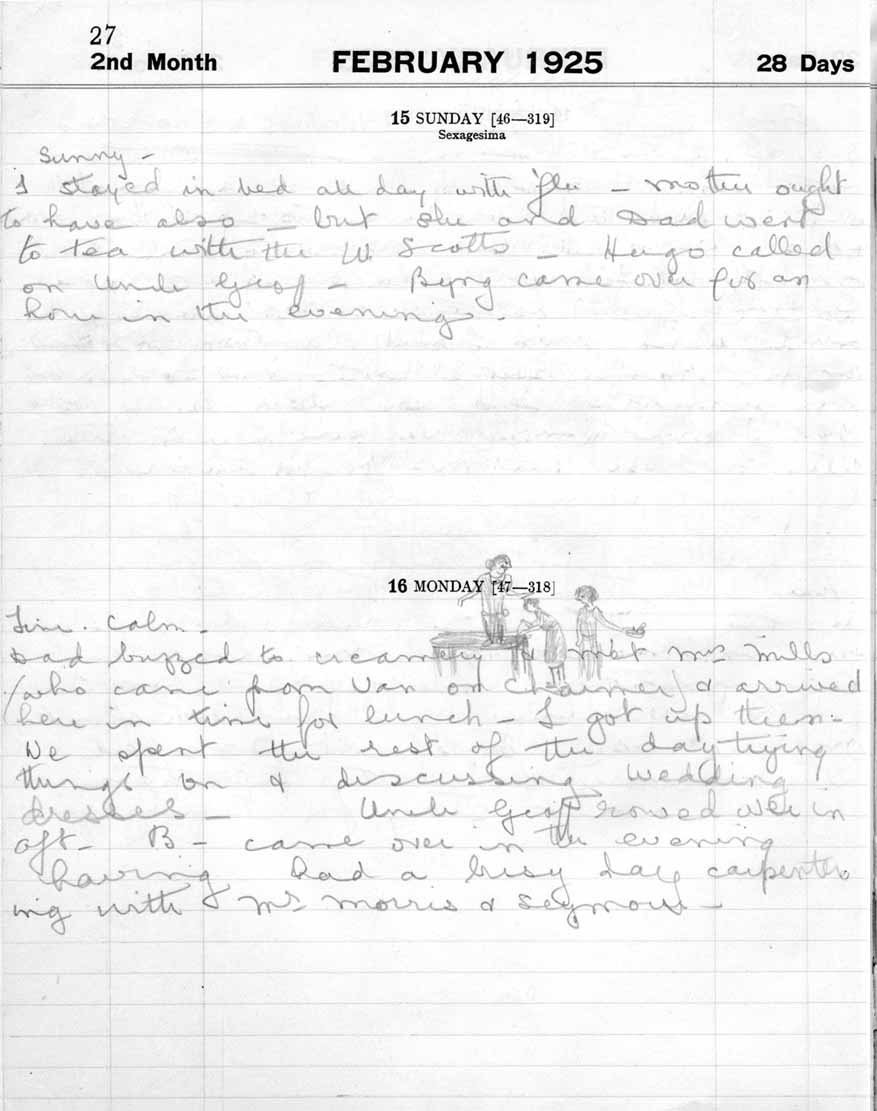 27
2nd Month FEBRUARY 1925 28 Days
15 SUNDAY [46—319]
Sexagesima
Sunny -
I stayed in bed all day with 'flu - mother ought
to have also - but she and Dad went
to tea with the W. Scotts - Hugo called
on Uncle Geof - Byng came over for an
hour in the evening.
16 MONDAY [47—318]
Fine. Calm -
Dad buzzed to creamery & met Mrs Mills
(who came from Van on Charmer) & arrived
here in time for lunch - I got up then -
We spent the rest of the day trying
things on & discussing wedding
dresses - Uncle Geoff rowed over in
aft - B - came over in the evening
having had a busy day carpenter
ing with Mr Morris & Seymour -